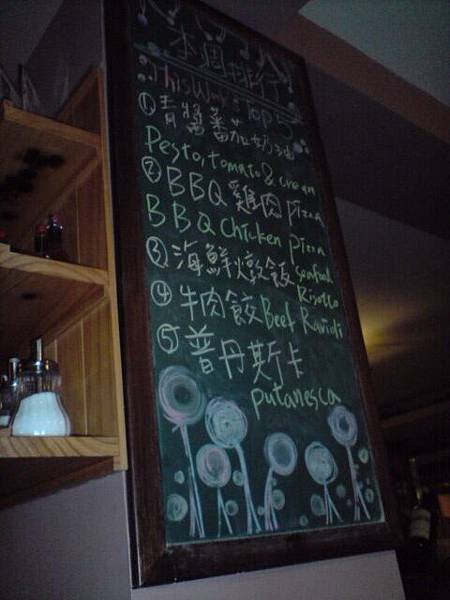 本週排行
This Week's Top 5
① 青醬蕃茄奶油
Pesto, tomato & cream
② BBQ 雞肉 pizza
BBQ Chicken pizza
③ 海鮮燉飯 seafood Risotto
④ 牛肉餃 Beef Ravioli
⑤ 普丹斯卡
putanesca